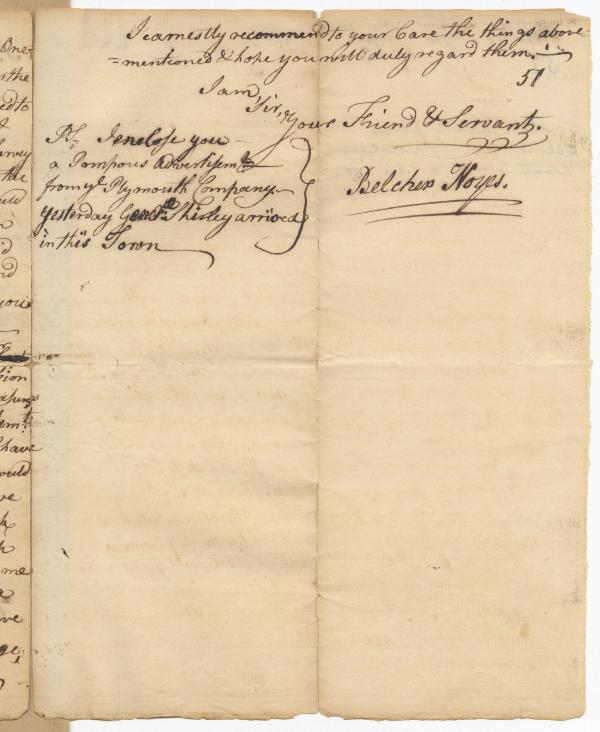 I earnestly recommend to your Care the things above
=mentioned & hope you will duly regard them.
51
I am
Sir,
Your Friend & Servant.
Belcher Noyes.
PS, I enclose you
a Pompous Advertisemt
from ye Plymouth Company
yesterday Genll Shirley arrived
in this Town
One
the
to
Survey
the
you
have
would
me